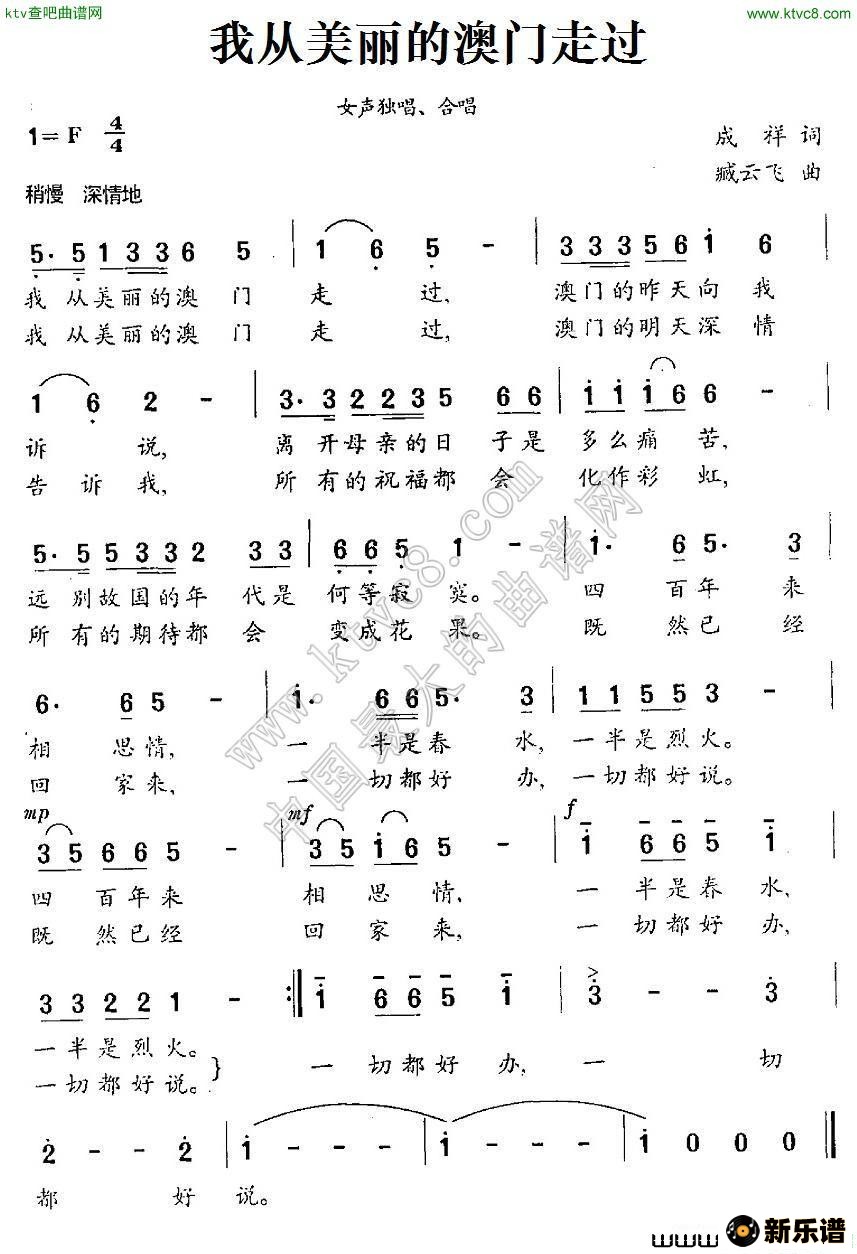 ktv查吧曲谱网 www.ktvc8.com
我从美丽的澳门走过
女声独唱、合唱
1=F 4/4
成祥词
臧云飞 曲
稍慢 深情地
5· 5 1 3 3 6 5 | 1 6 5 - | 3 3 3 5 6 1 6 |
我从美丽的澳门走过, 澳门的昨天向我
我从美丽的澳门走过, 澳门的明天深情
1 6 2 - | 3· 3 2 2 3 5 6 6 | 1 1 1 6 6 - |
诉说, 离开母亲的日子是多么痛苦,
告诉我, 所有的祝福都会化作彩虹,
5· 5 5 3 3 2 3 3 | 6 6 5 1 - | 1· 6 5· 3 |
远别故国的年代是何等寂寞。 四百年来
所有的期待都会变成花果。 既然已经
6· 6 5 - | 1· 6 6 5· 3 | 1 1 5 5 3 - |
相思情, 一半是春水, 一半是烈火。
回家来, 一切都好办, 一切都好说。
mp mf f
3 5 6 6 5 - | 3 5 1 6 5 - | 1 6 6 5 1 |
四百年来相思情, 一半是春水,
既然已经回家来, 一切都好办,
3 3 2 2 1 - :| 1 6 6 5 1 | 3 - - 3 |
一半是烈火。
一切都好说。 } 一切都好办, 一切
2 - - 2 | 1 - - - | 1 - - - | 1 0 0 0 ||
都好说。
www.ktvc8.com
中国最大的曲谱网
www 新乐谱